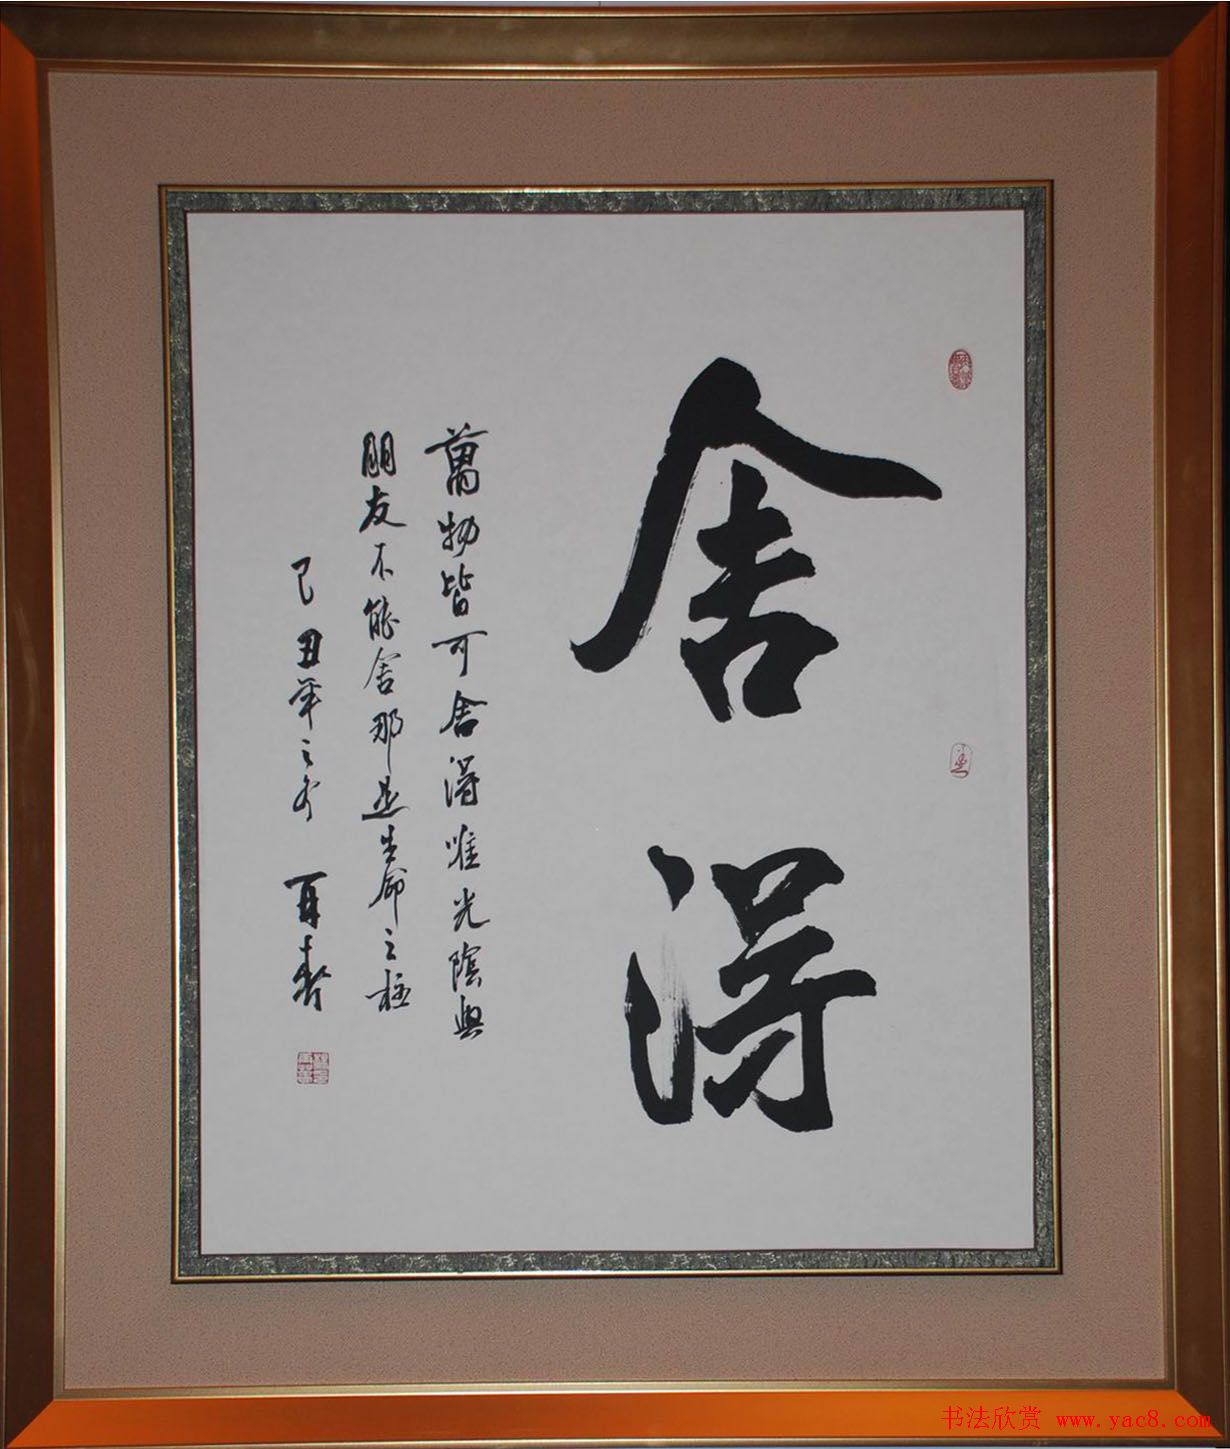 舍得
萬物皆可舍得唯光陰與
朋友不能舍那是生命之極
己丑年之冬 再春
书法欣赏 www.yac8.com